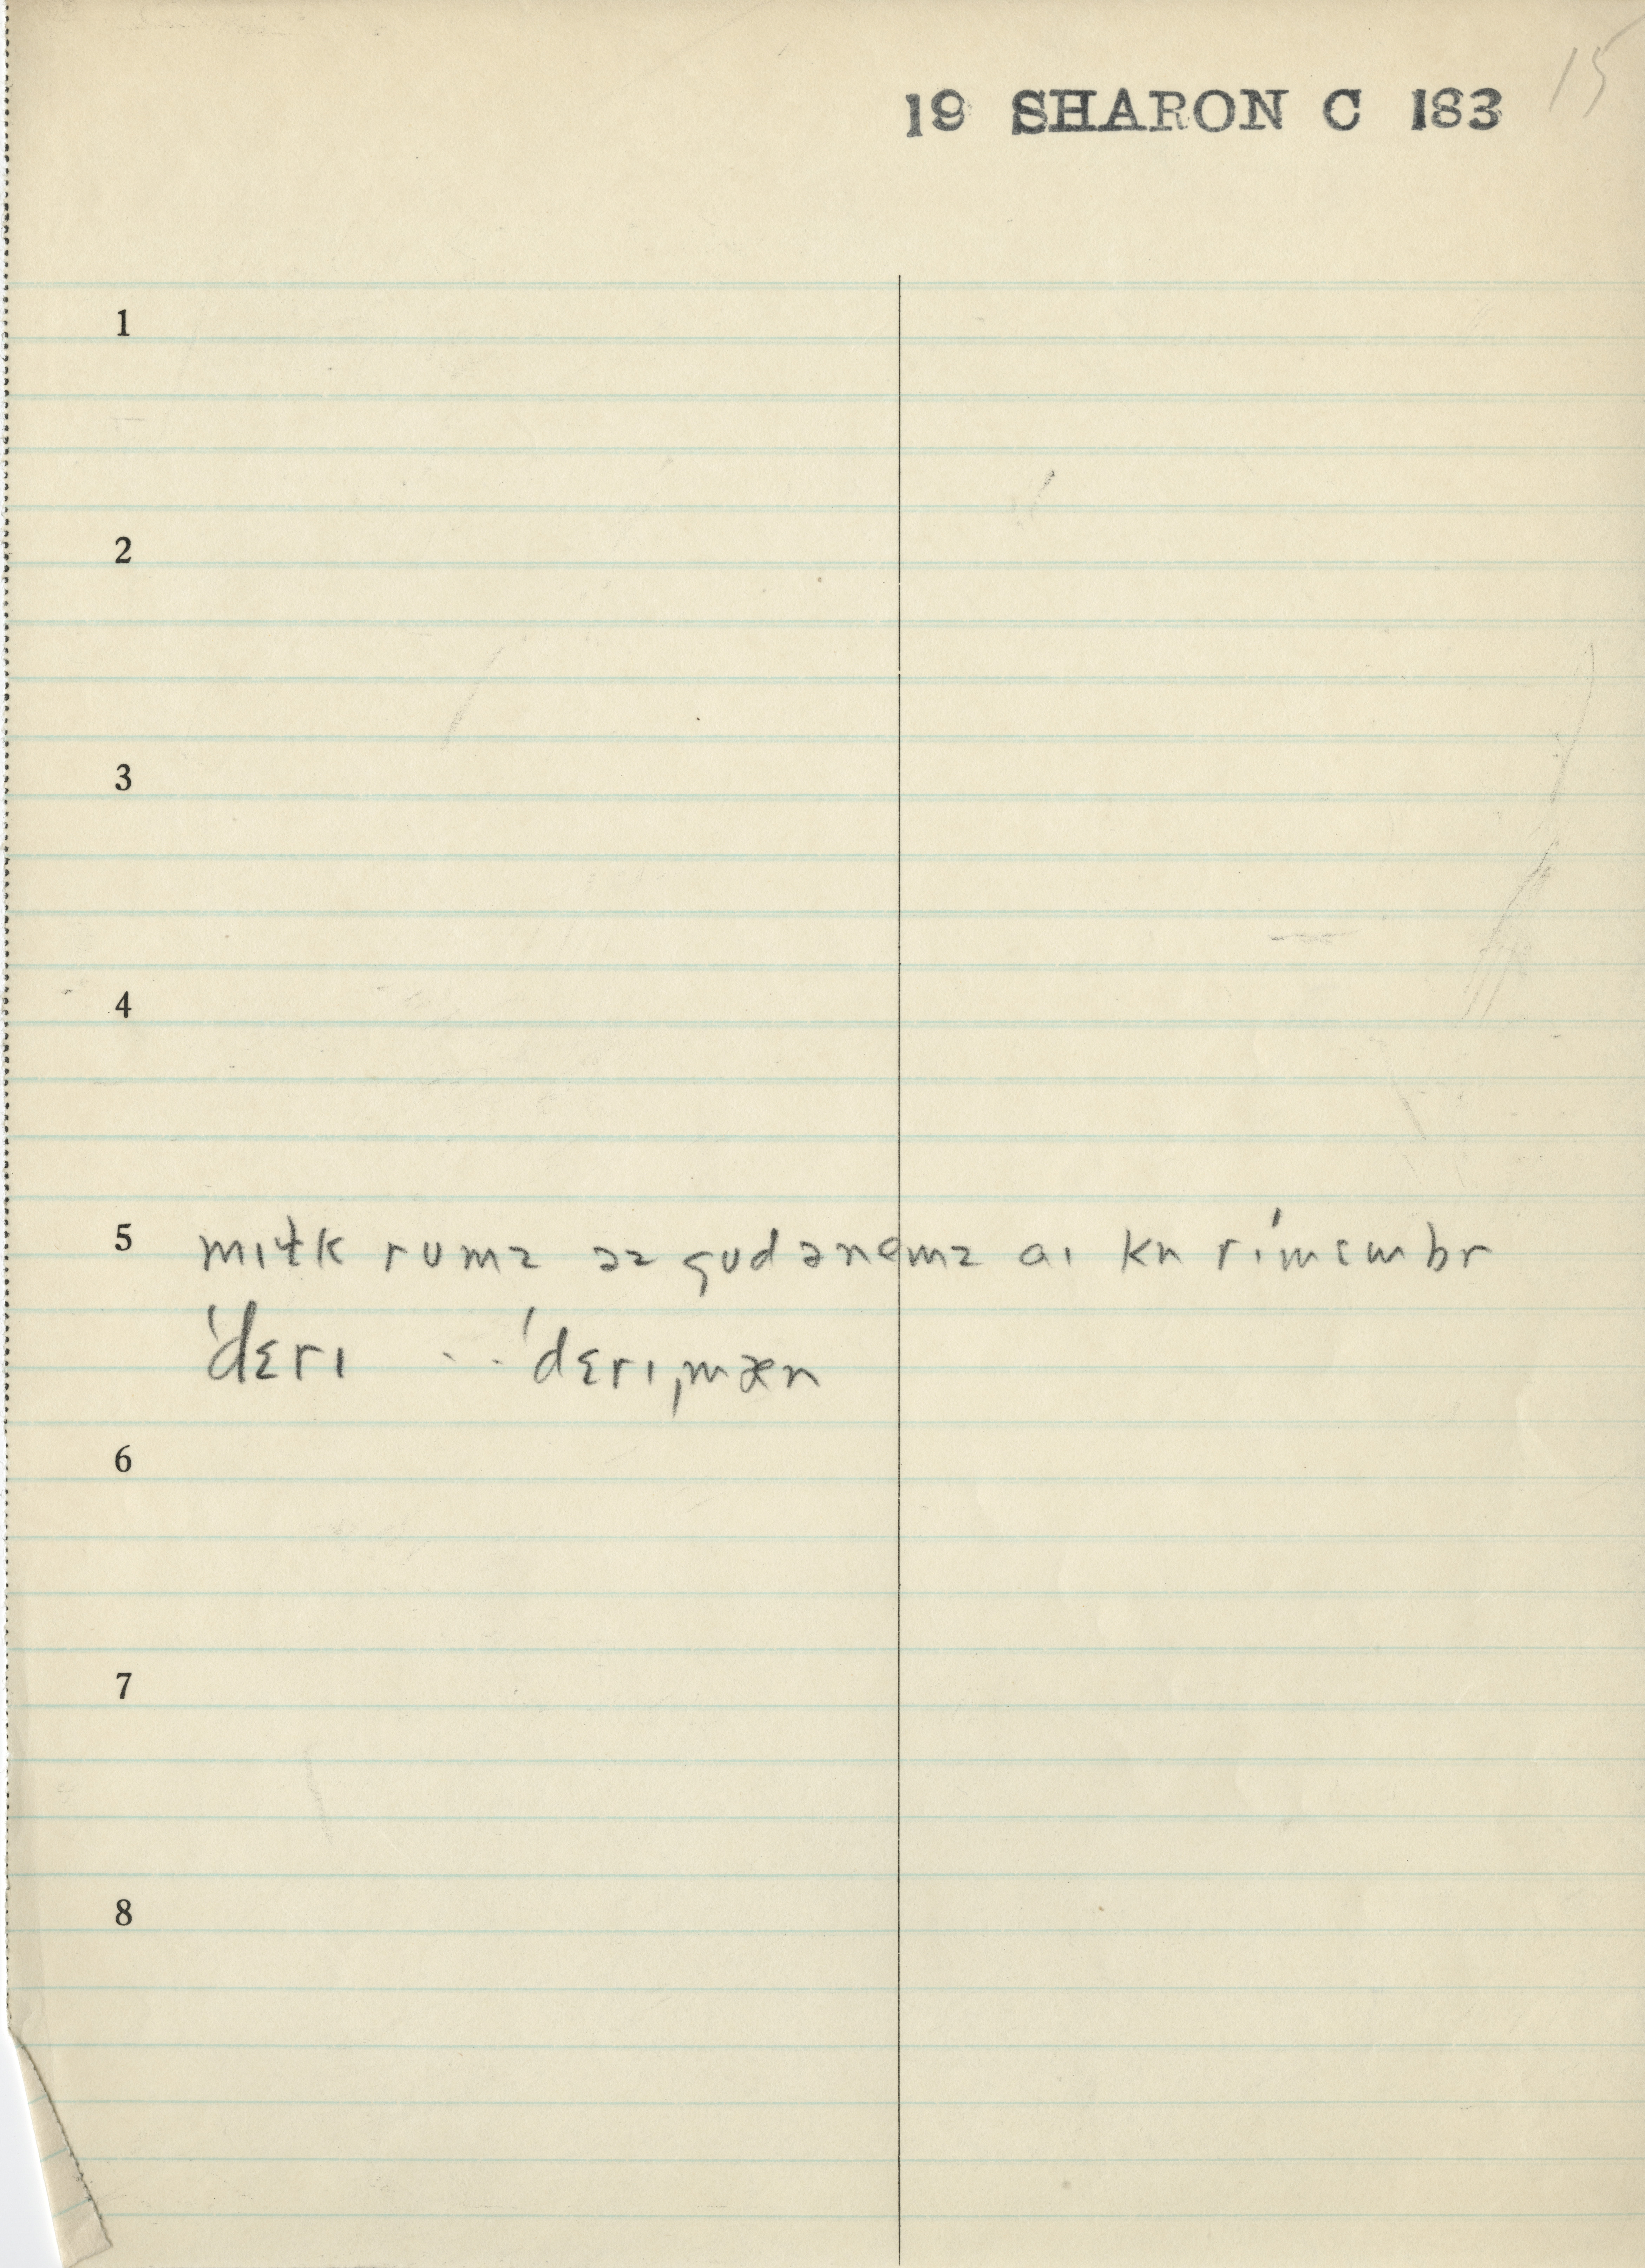 15
19 SHARON C 183
1
2
3
4
5 mɪɫk rumz əz gud ə nemz aɪ kn rɪˈmɛmbr
ˈdɛrɪ . . . ˈdɛrɪˌmæn
6
7
8